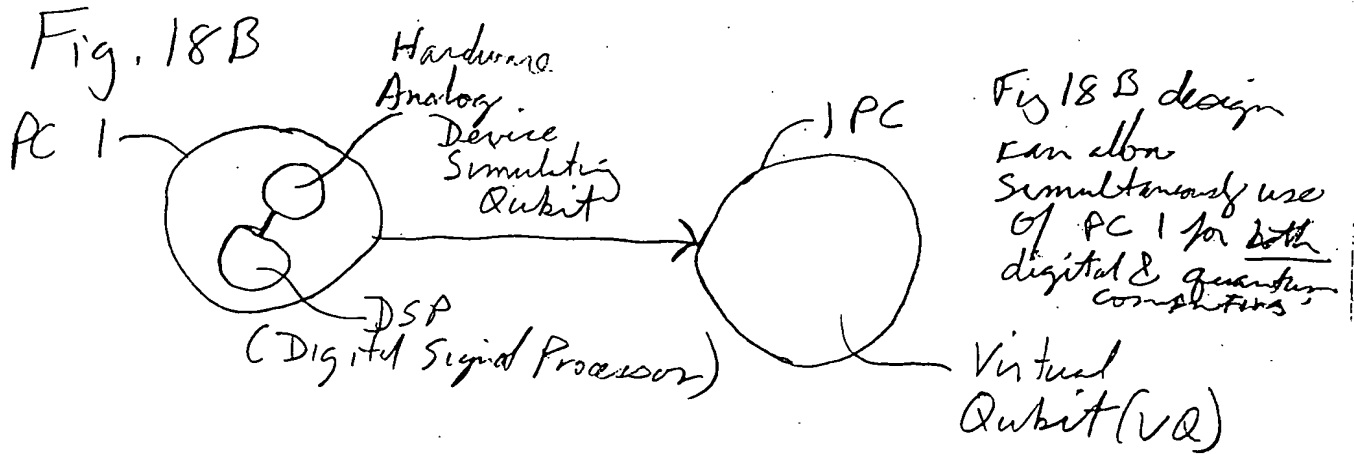 Fig. 18B
PC 1
Hardware
Analog
Device
Simulating
Qubit
DSP
(Digital Signal Processor)
1 PC
Virtual
Qubit (VQ)
Fig 18 B design
can allow
simultaneously use
of PC 1 for both
digital & quantum
computing.